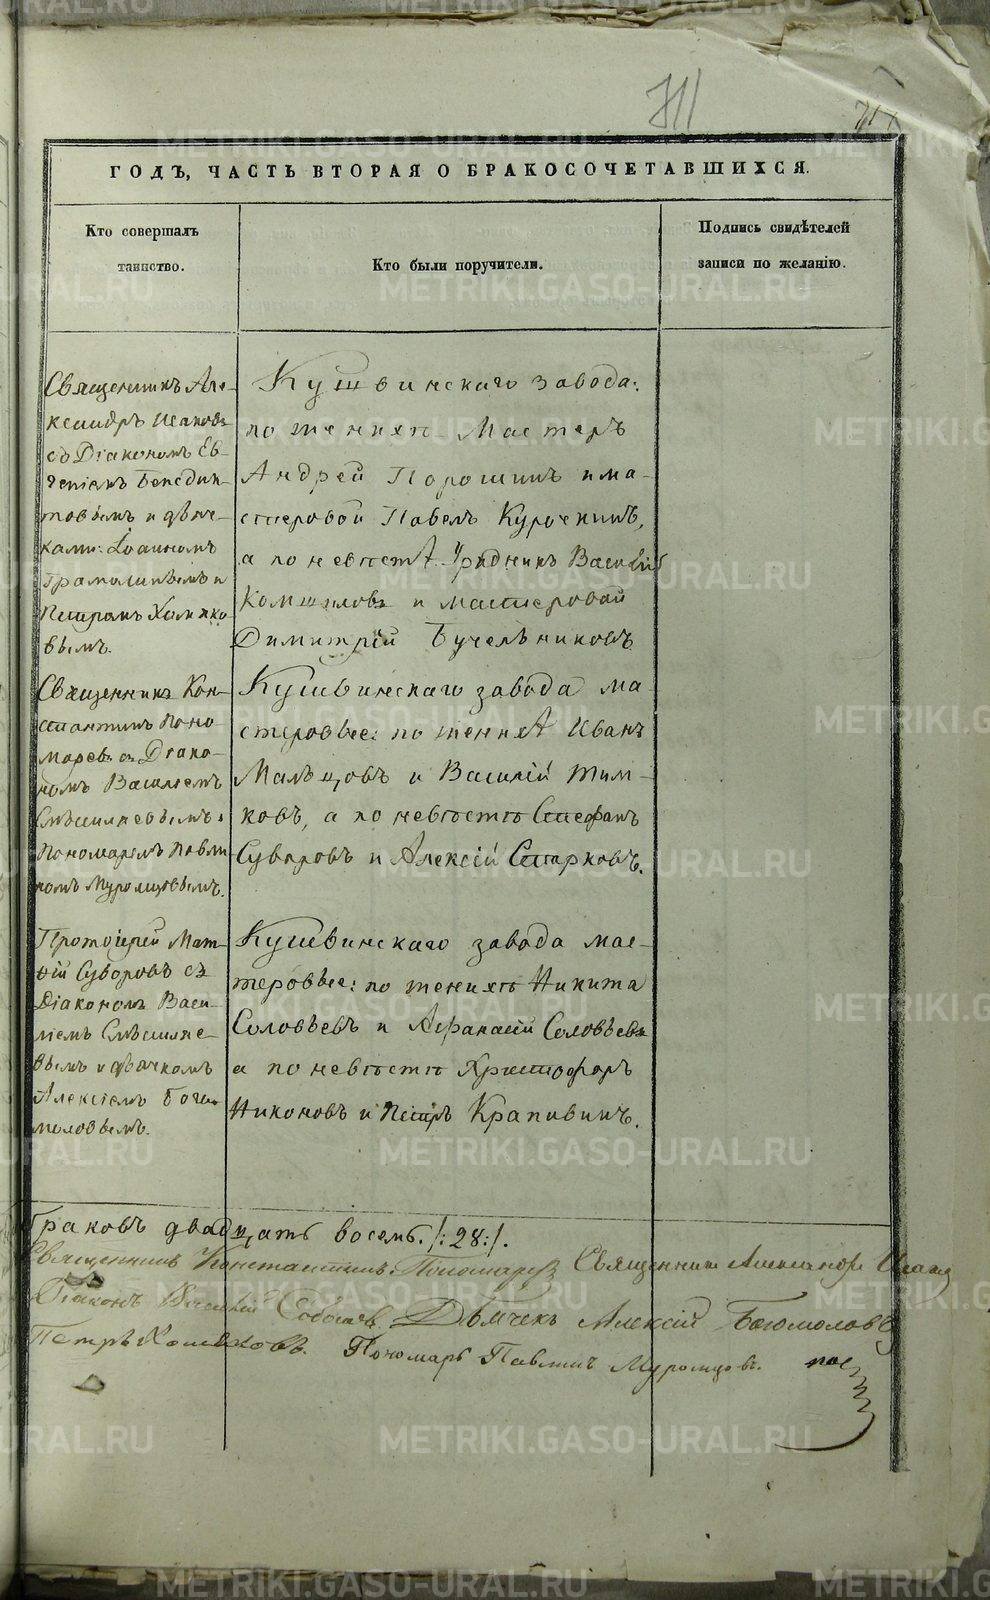 ГОДЪ, ЧАСТЬ ВТОРАЯ О БРАКОСОЧЕТАВШИХСЯ.
Кто совершалъ
таинство.
Кто были поручители.
Подпись свидѣтелей
записи по желанію.
Священникъ Але-
ксандръ Исаковъ
съ Діакономъ Ев-
геніемъ Бенедик-
товымъ и дьяч-
ками: Іоанномъ
и
Петромъ Хомяко
вымъ.
Кушвинскаго завода:
по женихѣ Мастеръ
Андрей Порошинъ и ма-
стеровой Павелъ Курочкинъ,
а по невѣстѣ Урядникъ Василій
Комшиловъ и мастеровой
Димитрій Бучельниковъ
Священникъ Кон-
стантинъ Поно
маревъ съ Діако-
номъ Василіемъ
Пономаремъ Павли
номъ Муромцовымъ.
Кушвинскаго завода ма
стеровые: по женихѣ Иванъ
Мальцовъ и Василій Тим-
ковъ, а по невѣстѣ Стефанъ
Суворовъ и Алексій Старковъ.
Протоіерей Мат-
ѳій Суворовъ съ
Діакономъ Васи-
ліемъ
вымъ и дьячкомъ
Алексіемъ Бого
моловымъ.
Кушвинскаго завода мас-
теровые: по женихѣ Никита
Соловьевъ и Афанасій Соловьевъ
а по невѣстѣ Христофоръ
Никоновъ и Петръ Крапивинъ.
Браковъ двадцать восемь. /: 28 :/.
Священникъ Константинъ Пономаревъ Священникъ Александръ Исаковъ
Діаконъ Василій Дьячекъ Алексій Богомоловъ
Петръ Хомяковъ. Пономарь Павлинъ Муромцовъ.
METRIKI.GASO-URAL.RU